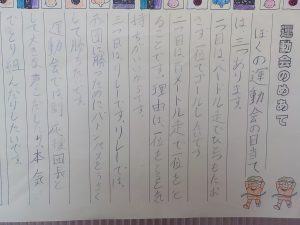 運動会のめあて
ぼくの運動会の目あて
は三つあります。
一つ目はハードル走でひっとたお
さず一位でゴールしたいです。
二つ目は メートル走で一位をと
ることです。理由は一位をとると気
持ちがいいからです。
三つ目はリレーです。リレーでは、
団に勝つためにバトンパスをうまく
して勝ちたいです。
運動会では 応援団長と
して大きな声を出し 本気
でとり組んだりしたいです。